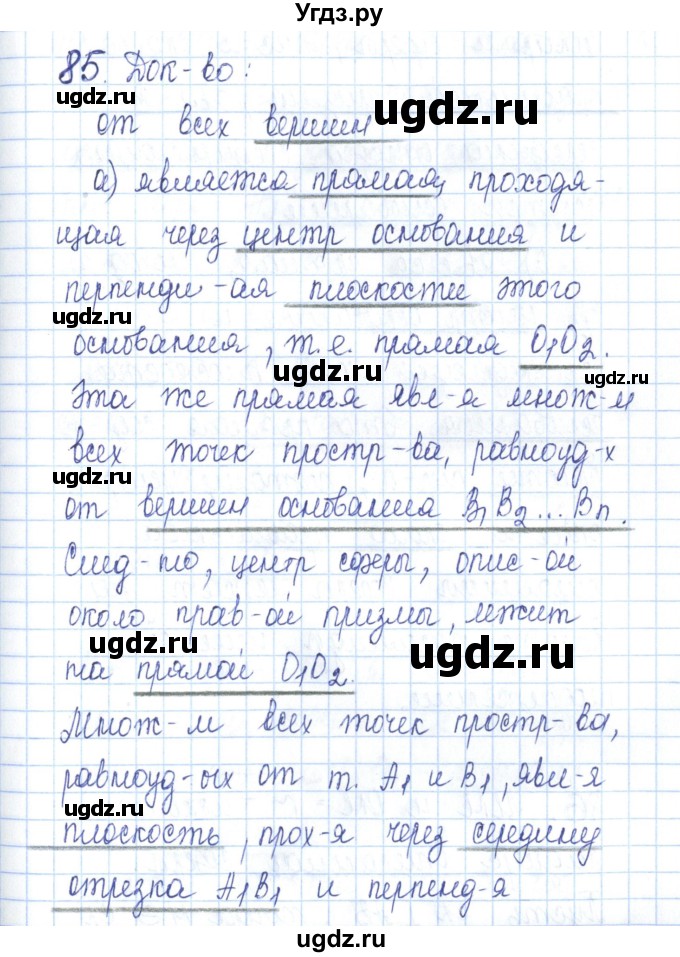 Угдз.ру
85. Док-во:
ugdz.ru
ugdz.ru
от всех вершин
а) является прямая, проходя-
щая через центр основания и
перпенди-ая плоскости этого
ugdz.ru
основания, т.е. прямая O₁O₂.
ugdz.ru
ugdz.ru
Эта же прямая явл-я множ-м
всех точек простр-ва, равноуд-х
ugdz.ru
от вершин основания B₁B₂...Bn.
След-но, центр сферы, опис-ой
около прав-ой призмы, лежит
ugdz.ru
ugdz.ru
на прямой O₁O₂.
Множ-м всех точек простр-ва,
равноуд-ых от т. A₁ и B₁, явл-я
ugdz.ru
плоскость, прох-я через середину
отрезка A₁B₁ и перпенд-я
ugdz.ru
ugdz.ru